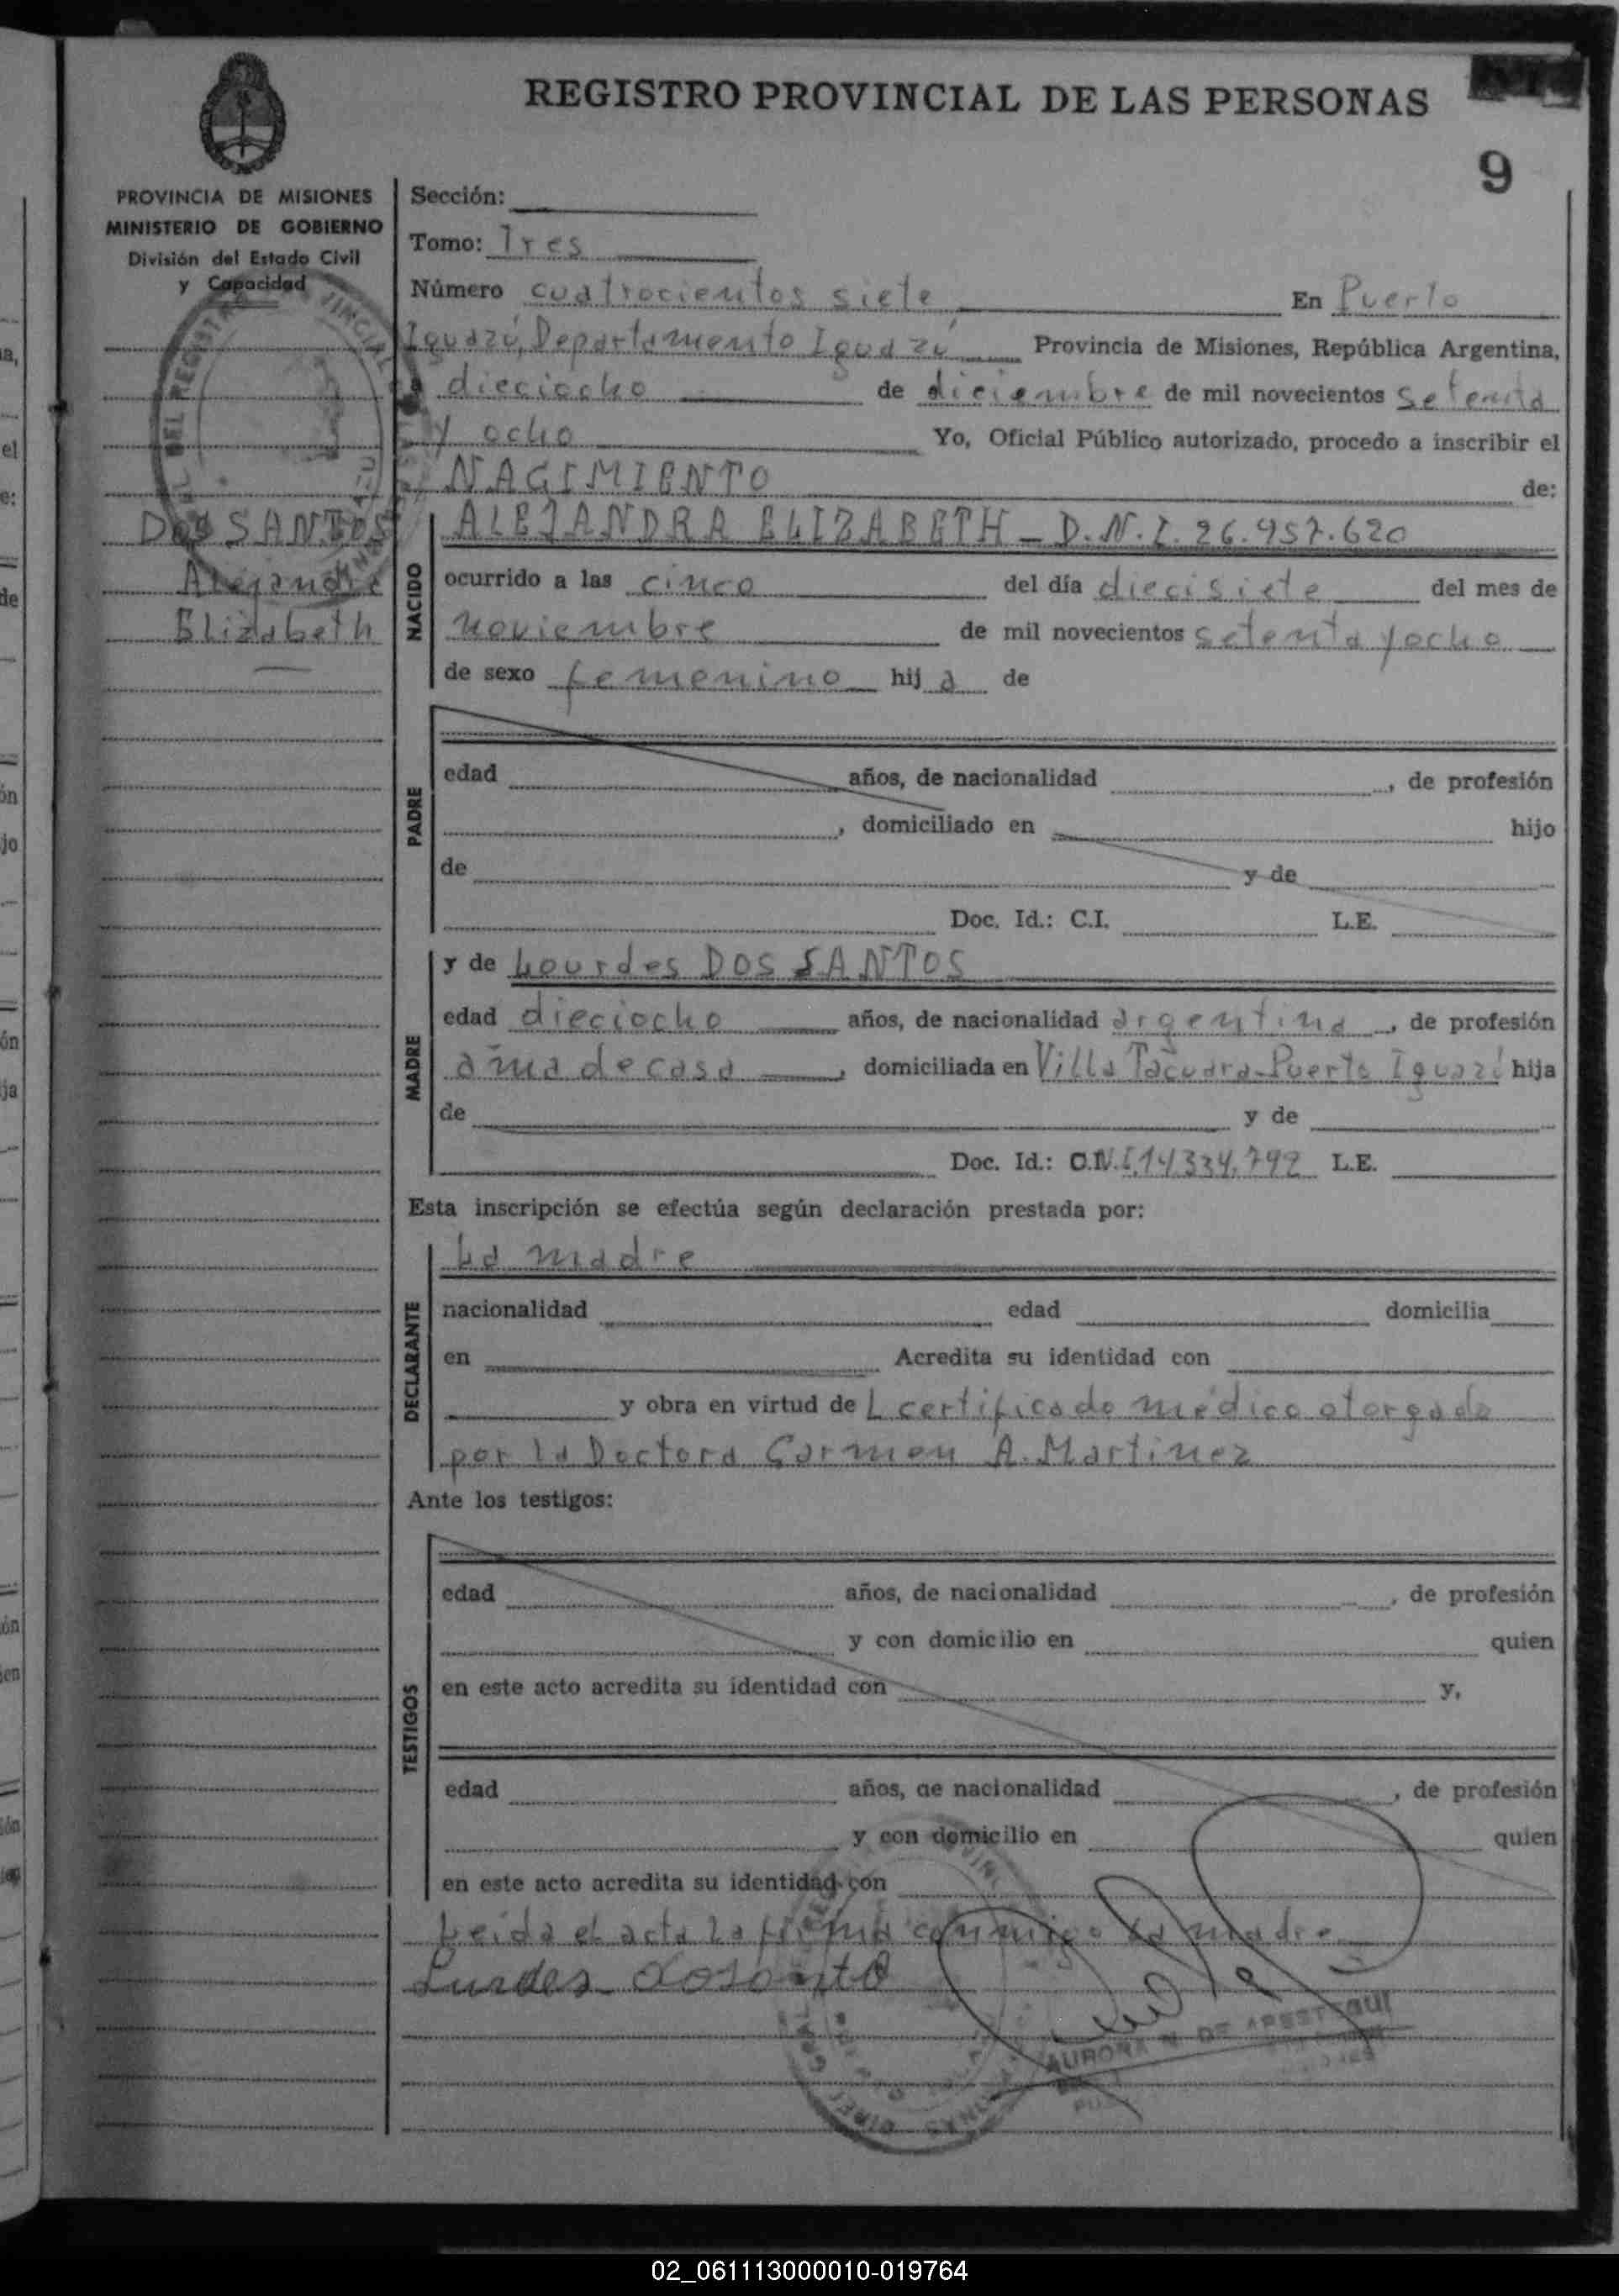 REGISTRO PROVINCIAL DE LAS PERSONAS
9
PROVINCIA DE MISIONES
MINISTERIO DE GOBIERNO
División del Estado Civil
y Capacidad
Sección:
Tomo: Tres
Número cuatrocientos siete En Puerto
Iguazú, Departamento Iguazú Provincia de Misiones, República Argentina,
a dieciocho de diciembre de mil novecientos setenta
y ocho Yo, Oficial Público autorizado, procedo a inscribir el
NACIMIENTO de:
DOS SANTOS
Alejandra
Elizabeth
NACIDO
ALEJANDRA ELIZABETH - D.N.I. 26.957.620
ocurrido a las cinco del día diecisiete del mes de
noviembre de mil novecientos setenta y ocho
de sexo femenino hij a de
PADRE
edad años, de nacionalidad , de profesión
, domiciliado en hijo
de y de
Doc. Id.: C.I. L.E.
MADRE
y de Lourdes DOS SANTOS
edad dieciocho años, de nacionalidad argentina, de profesión
ama de casa, domiciliada en Villa Tacuara-Puerto Iguazú hija
de y de
Doc. Id.: D.N.I. 14.334.792 L.E.
Esta inscripción se efectúa según declaración prestada por:
DECLARANTE
La madre
nacionalidad edad domicilia
en Acredita su identidad con
y obra en virtud de L certificado médico otorgado
por la Doctora Carmen A. Martinez
Ante los testigos:
TESTIGOS
edad años, de nacionalidad , de profesión
y con domicilio en quien
en este acto acredita su identidad con y,
edad años, de nacionalidad , de profesión
y con domicilio en quien
en este acto acredita su identidad con
Leida el acta la firma conmigo la madre
Lurdes dosanto
AURORA DE APESTEGUI
02_061113000010-019764